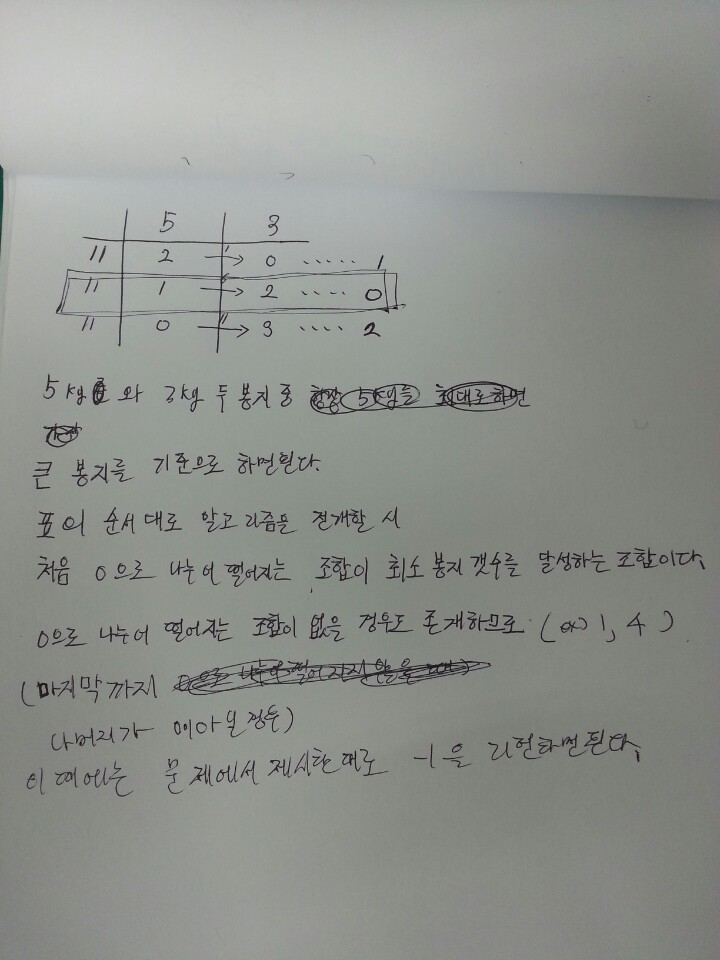 5 3
11 2 → 0 ..... 1
11 1 → 2 .... 0
11 0 → 3 .... 2
5kg 와 3kg 두 봉지 중
큰 봉지를 기준으로 하면된다.
표의 순서대로 알고리즘을 전개할 시
처음 0으로 나누어 떨어지는 조합이 최소 봉지 갯수를 달성하는 조합이다.
0으로 나누어 떨어지는 조합이 없을 경우도 존재하므로 (ex) 1, 4 )
(마지막까지
나머지가 0이 아닐 경우)
이 때에는 문제에서 제시한대로 -1을 리턴하면된다.